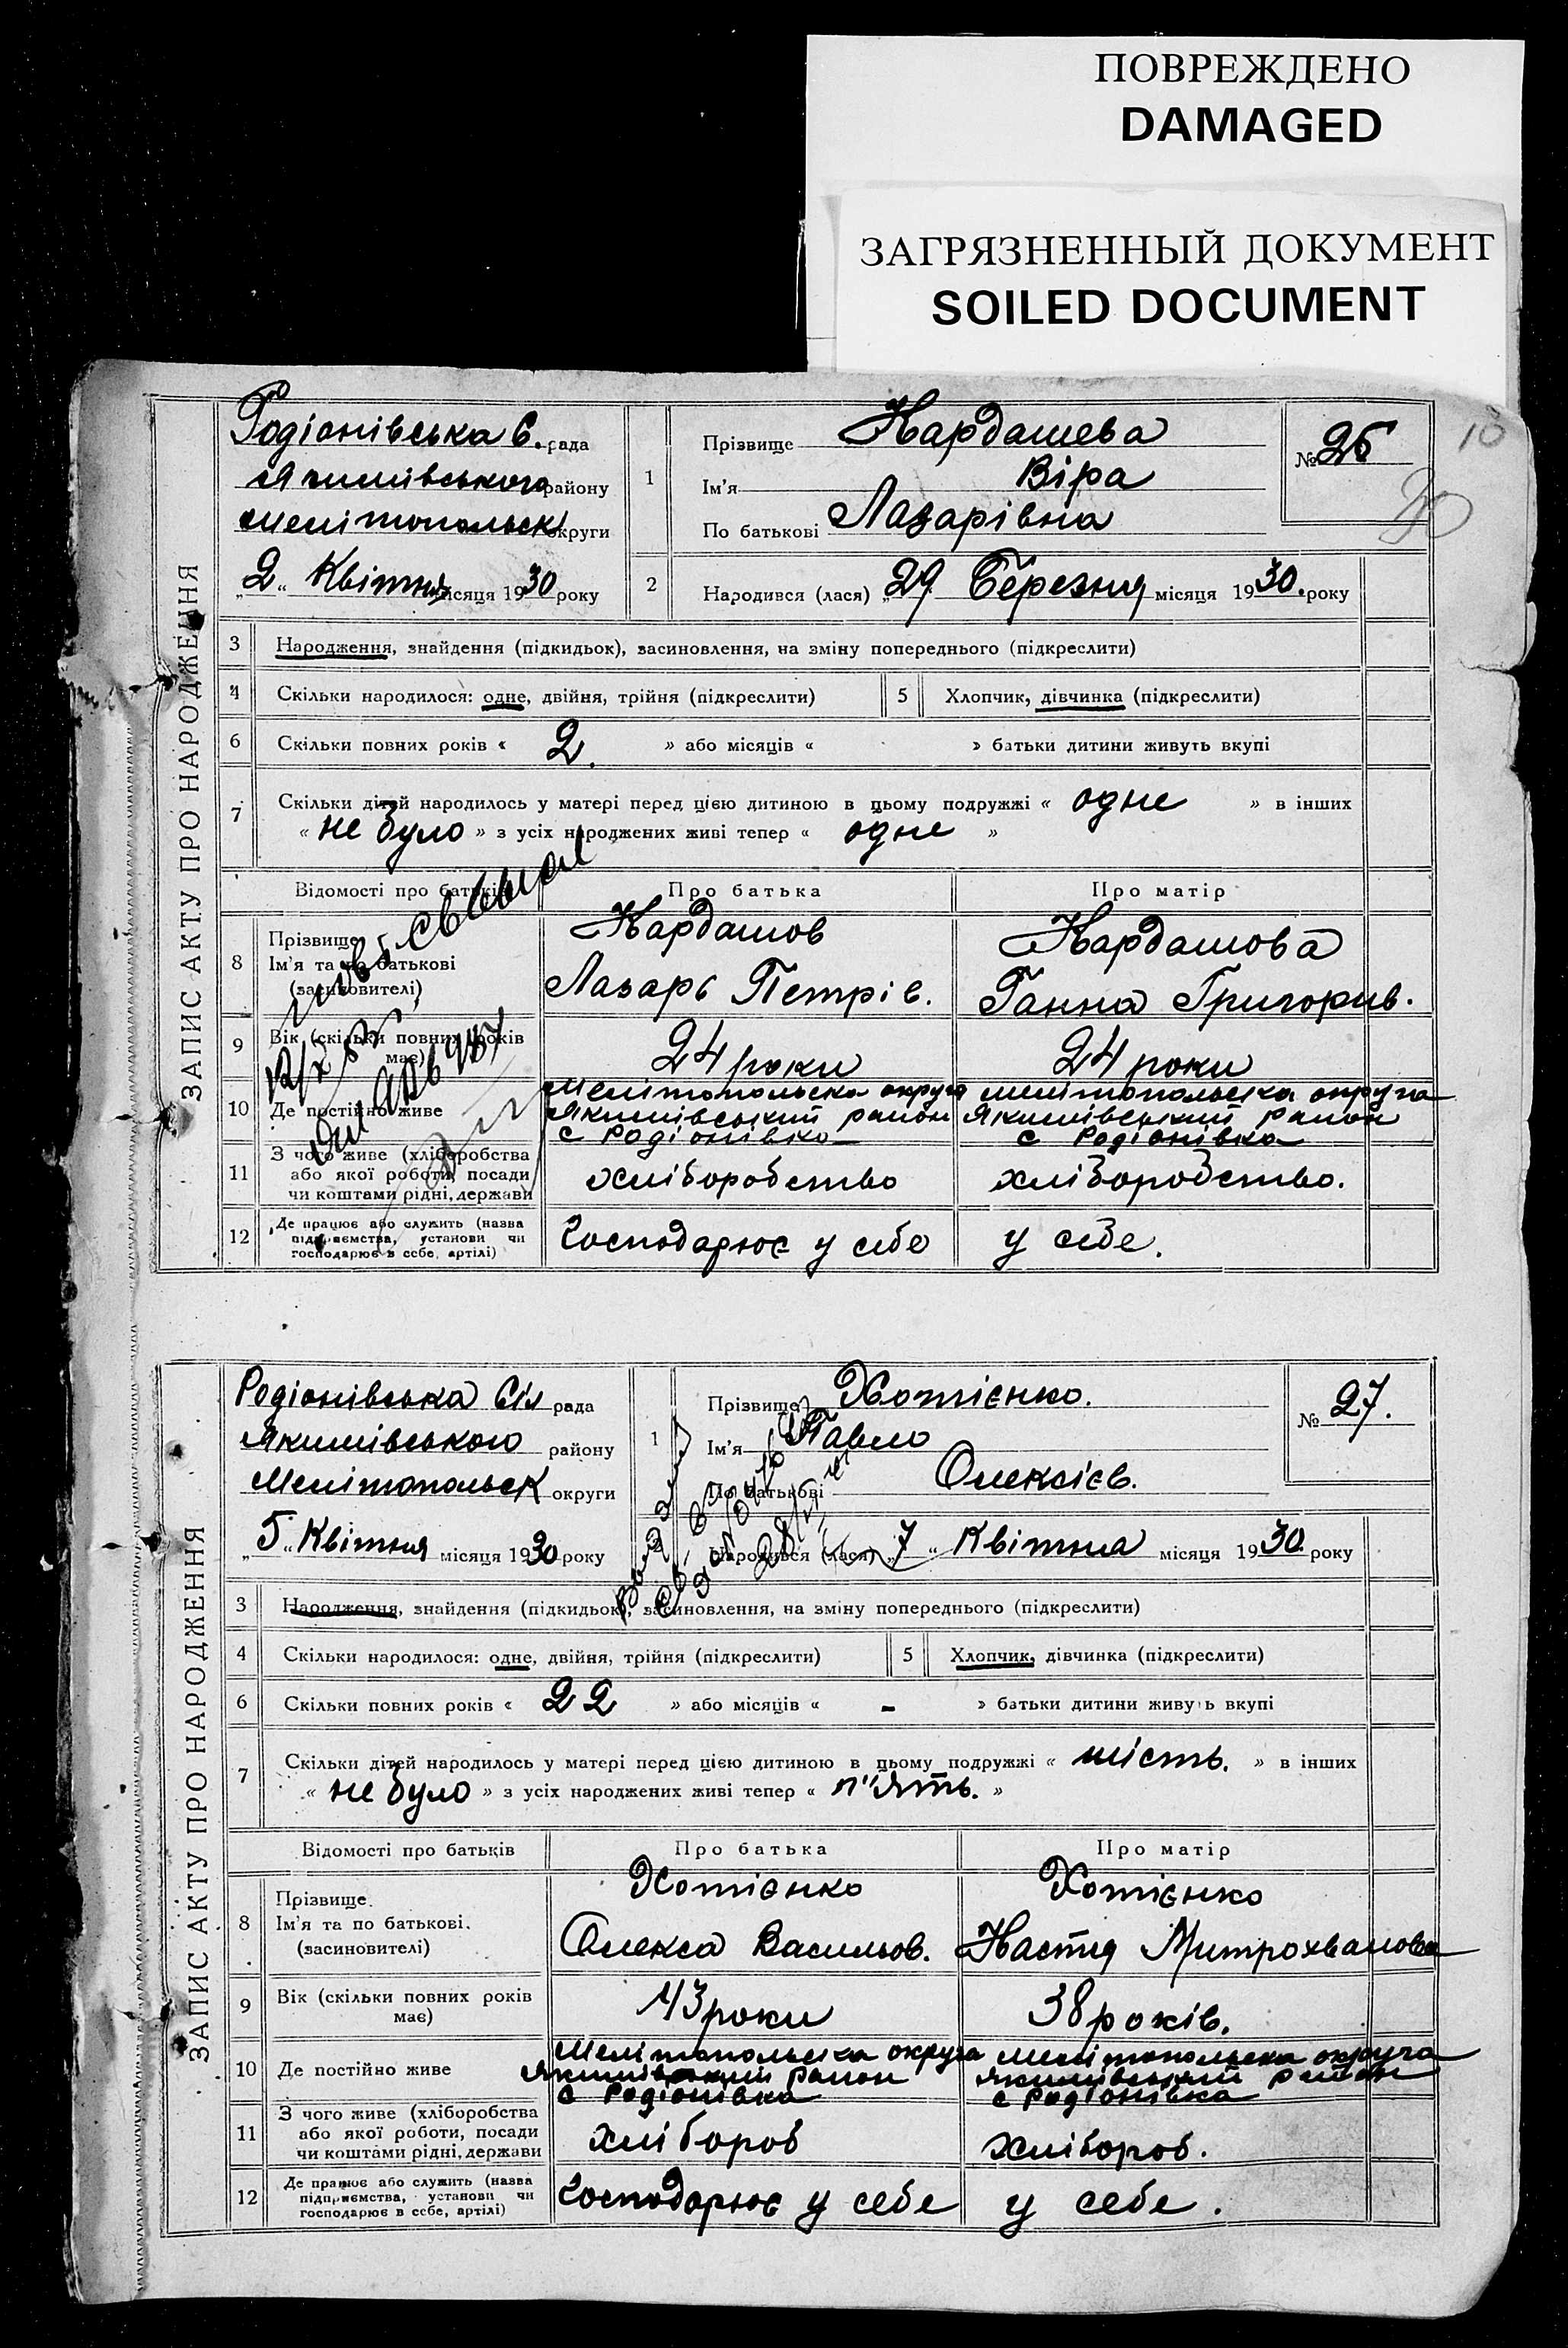 ПОВРЕЖДЕНО
DAMAGED
ЗАГРЯЗНЕННЫЙ ДОКУМЕНТ
SOILED DOCUMENT
10
ЗАПИС АКТУ ПРО НАРОДЖЕННЯ
Родіонівська С. рада
Якимівського району
Мелітопольськ округи
„2“ Квітня місяця 1930 року
1
Прізвище Кардашева
Ім'я Віра
По батькові Лазарівна
№ 26
2
Народився (лася) „29 Березня місяця 1930. року
3 Народження, знайдення (підкидьок), засиновлення, на зміну попереднього (підкреслити)
4 Скільки народилося: одне, двійня, трійня (підкреслити) 5 Хлопчик, дівчинка (підкреслити)
6 Скільки повних років « 2. » або місяців « » батьки дитини живуть вкупі
7 Скільки дітей народилось у матері перед цією дитиною в цьому подружжі « одне » в інших
« не було » з усіх народжених живі тепер « одне »
Відомості про батьків Про батька Про матір
8 Прізвище
Ім'я та по батькові
(засиновителі)
Кардашов
Лазарь Петрів.
Кардашова
Ганна Григорив.
9 Вік (скільки повних років
має)
24 роки 24 роки
10 Де постійно живе
Мелітопольска округа
Якимівський район
с Родіонівка
мелітопольска округа
Якимівський район
с Родіонівка
11 З чого живе (хліборобства
або якої роботи, посади
чи коштами рідні, держави
хліборобство хліборобство.
12 Де працює або служить (назва
підприємства, установи чи
господарює в себе, артілі)
Господарює у себе у себе.
ЗАПИС АКТУ ПРО НАРОДЖЕННЯ
Родіонівська Сіл рада
Якимівського району
Мелітопольськ округи
„5“ Квітня місяця 1930 року
1
Прізвище Хотієнко.
Ім'я Павло
По батькові Олексієв.
№ 27.
Народився (лася) „7“ Квітна місяця 1930 року
3 Народження, знайдення (підкидьок), засиновлення, на зміну попереднього (підкреслити)
4 Скільки народилося: одне, двійня, трійня (підкреслити) 5 Хлопчик, дівчинка (підкреслити)
6 Скільки повних років « 22 » або місяців « - » батьки дитини живуть вкупі
7 Скільки дітей народилось у матері перед цією дитиною в цьому подружжі « шість. » в інших
« не було » з усіх народжених живі тепер « п"ять. »
Відомості про батьків Про батька Про матір
8 Прізвище
Ім'я та по батькові
(засиновителі)
Хотієнко
Олекса Васильов.
Хотієнко
Настя Митрохванова
9 Вік (скільки повних років
має)
43 роки 38 років.
10 Де постійно живе
Мелітопольска округа
Якимівський район
с Родіонівка
мелітопольска округа
Якимівський район
с Родіонівка
11 З чого живе (хліборобства
або якої роботи, посади
чи коштами рідні, держави
хлібороб хлібороб.
12 Де працює або служить (назва
підприємства, установи чи
господарює в себе, артілі)
Господарює у себе у себе.